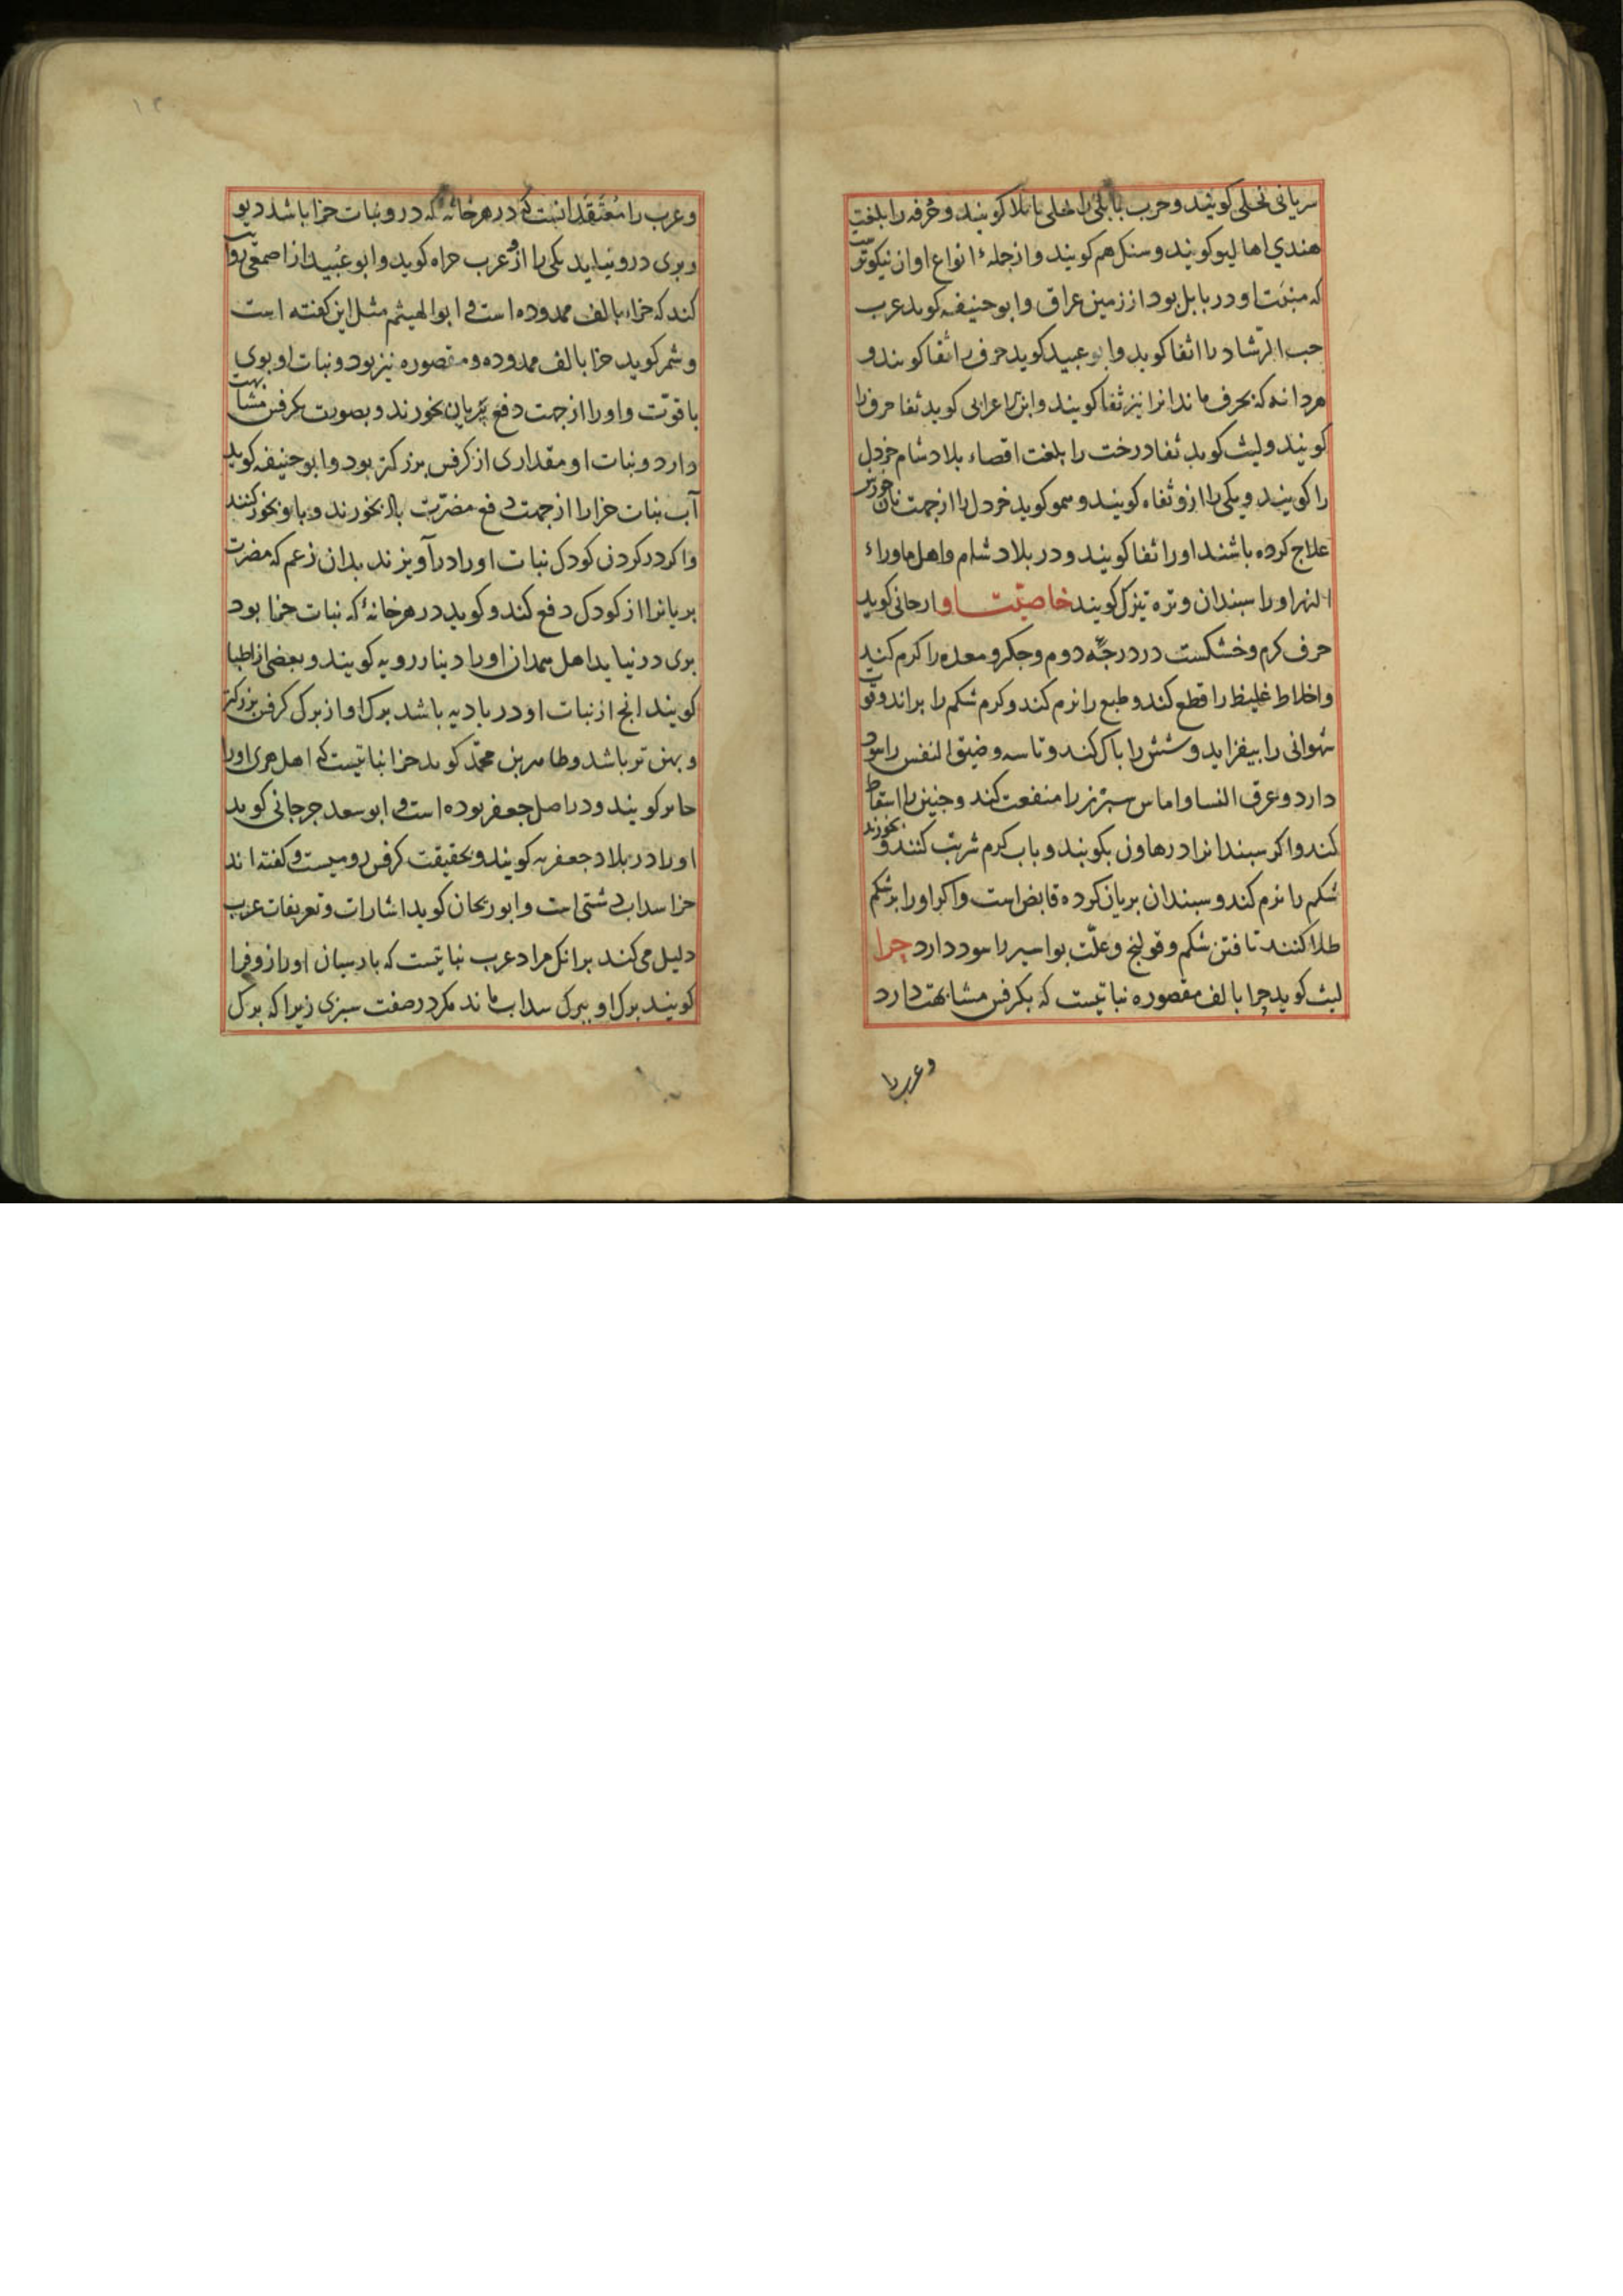 سریانی تحلی کویند و حرب بابلی را تحلی بابلا کویند و خرفه را بلغت
هندی اهالیو کویند و سنکل هم کویند و از جملهٔ انواع او ان نیکوتر
که منبت او در بابل بود از زمین عراق و ابو حنیفه کوید عرب
حب الرشاد را اثفا کوید و ابو عبید کوید حرف را ثفا کویند و
هر دانه که بحرف ماند انرا نیز ثفا کویند و ابن اعرابی کوید ثفا حرف را
کویند و لیث کوید ثفا درخت را بلغت اقصاء بلاد شام خردل
را کویند و یکی را ازو ثفاء کویند و سمو کوید خردل را از جهت نان خورش
علاج کرده باشند او را ثفا کویند و در بلاد شام و اهل ماوراء
النهر او را سبندان و تره تیزک کویند خاصیّت او ارجانی کوید
حرف کرم و خشکست در درجهٔ دوم و جکر و معده را کرم کند
و اخلاط غلیظ را قطع کند و طبع را نرم کند و کرم شکم را براند و قوت
شهوانی را بیفزاید و شش را پاک کند و تاسه و ضیق النفس را سود
دارد و عرق النسا و اماس سپرز را منفعت کند و جنین را اسقاط
کند و اکر سبندانرا در هاون بکوبند و باب کرم شربت کنند و بخورند
شکم را نرم کند و سبندان بریان کرده قابض است و اکر او را بر شکم
طلا کنند تافتن شکم و قولنج و علّت بواسیر را سود دارد حزا
لیث کوید حزا بالف مقصوره نباتیست که بکرفس مشابهت دارد
و عرب را
و عرب را معتقد انست که در هر خانهٔ که درو نبات حزا باشد دیو
و پری درو نیاید یکی را ازو عرب حزاه کوید و ابو عبید از اصمعی روایت
کند که حزاء بالف ممدوده است و ابو الهیثم مثل این کفته است
و شمر کوید حزا بالف ممدوده و مقصوره نیز بود و نبات او بوی
با قوّت و او را از جهت دفع پریان بخورند و بصورت بکرفس مشابهت
دارد و نبات او مقداری از کرفس بزرکتر بود و ابو حنیفه کوید
آب نبات حزا را از جهت دفع مضرّت باد بخورند و باو بخور کنند
و اکر در کردن کودک نبات او را درآویزند بدان زعم که مضرت
پریانرا از کودک دفع کند و کوید در هر خانهٔ که نبات حزا بود
پری در نیاید اهل همدان او را دینارویه کویند و بعضی از اطبا
کویند انچ از نبات او در بادیه باشد برک او از برک کرفس بزرکتر
و پهن تر باشد و طاهر بن محمّد کوید حزا نباتیست که اهل هری او را
حامر کویند و در اصل جعفر بوده است و ابو سعد جرجانی کوید
او را در بلاد جعفریه کویند و بحقیقت کرفس رومیست و کفته اند
حزا سداب دشتی است و ابو ریحان کوید اشارات و تعریفات عرب
دلیل می کند بر انک مراد عرب نباتیست که پارسیان او را زوفرا
کویند برک او ببرک سداب ماند مکر در صفت سبزی زیرا که برک